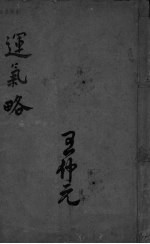 運氣略
王仲元